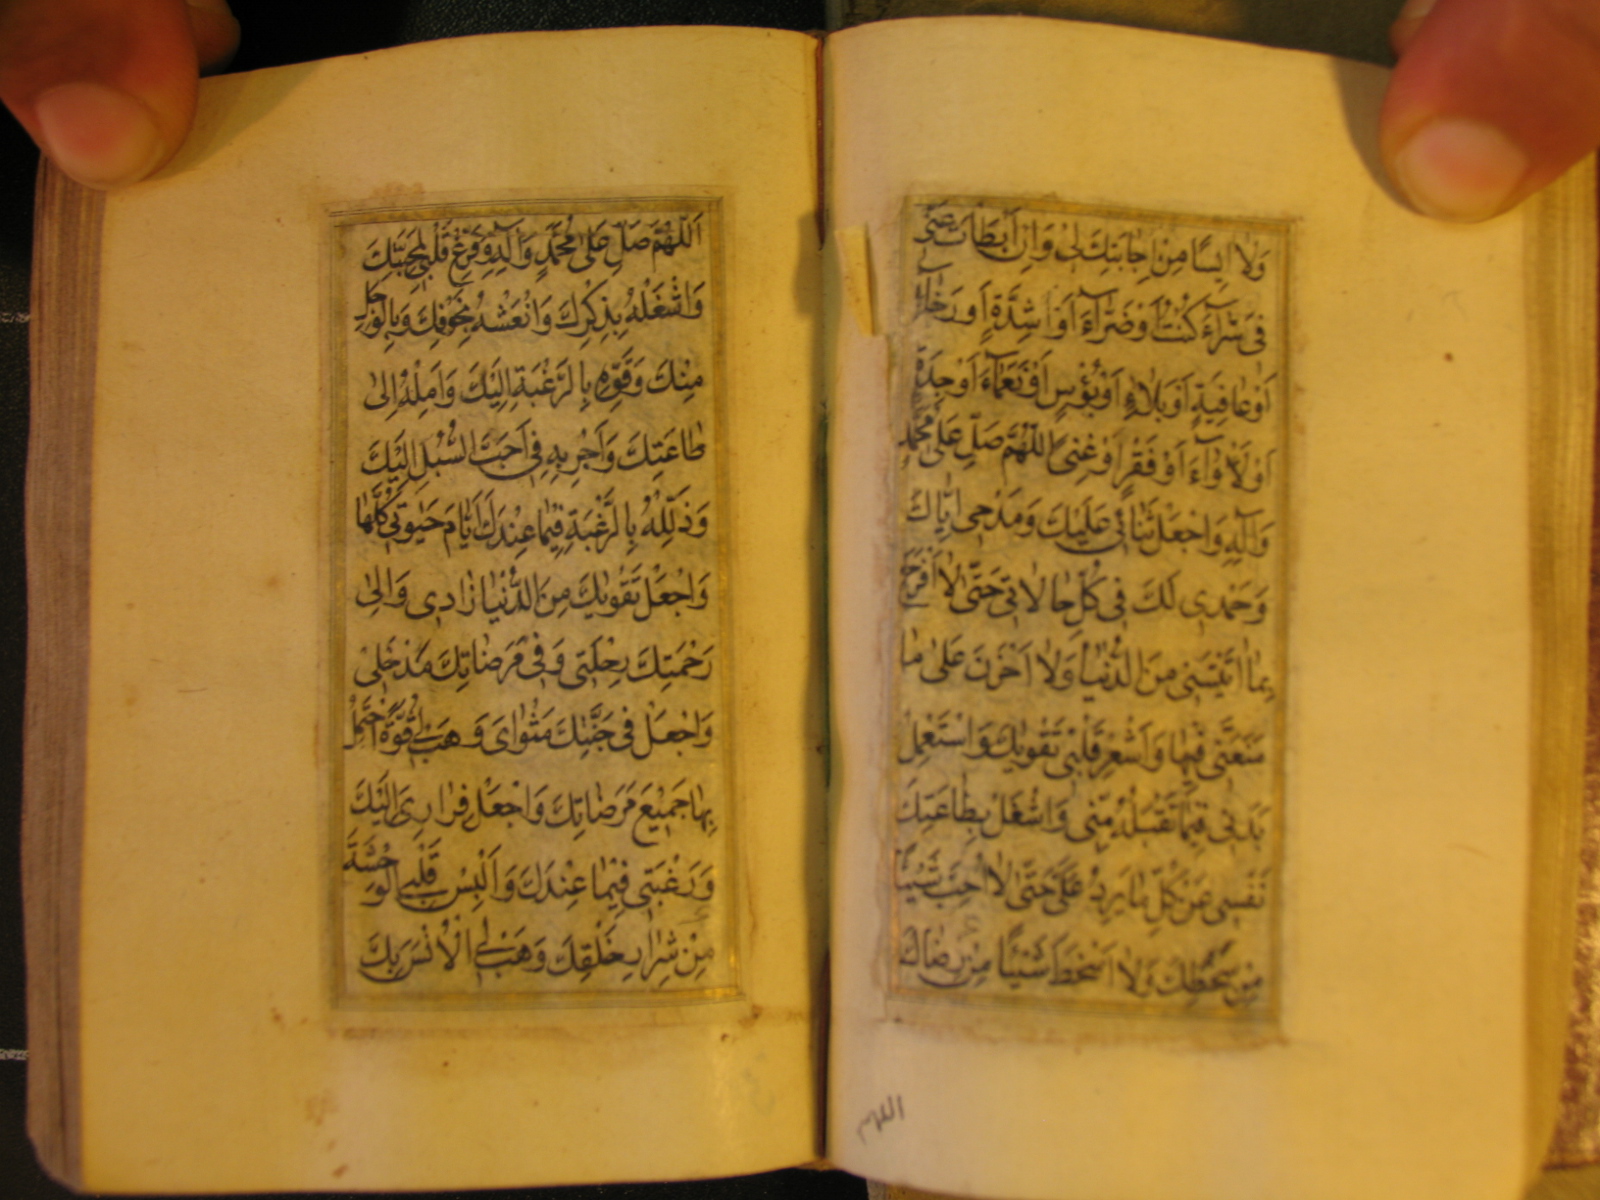 وَلَا اٰيِسًا مِنْ اِجَابَتِكَ لِي وَاِنْ اَبْطَاَتْ عَنِّي
فِي سَرَّاءَ كُنْتُ اَوْ ضَرَّاءَ اَوْ شِدَّةٍ اَوْ رَخَاءٍ
اَوْ عَافِيَةٍ اَوْ بَلَاءٍ اَوْ بُؤْسٍ اَوْ نَعْمَاءَ اَوْ جِدَةٍ
اَوْ لَاْوَاءَ اَوْ فَقْرٍ اَوْ غِنًى اللّٰهُمَّ صَلِّ عَلٰى مُحَمَّدٍ
وَاٰلِهِ وَاجْعَلْ ثَنَائِي عَلَيْكَ وَمَدْحِي اِيَّاكَ
وَحَمْدِي لَكَ فِي كُلِّ حَالَاتِي حَتّٰى لَا اَفْرَحَ
بِمَا اٰتَيْتَنِي مِنَ الدُّنْيَا وَلَا اَحْزَنَ عَلٰى مَا
مَنَعْتَنِي فِيهَا وَاَشْعِرْ قَلْبِي تَقْوٰيكَ وَاسْتَعْمِلْ
بَدَنِي فِيمَا تَقْبَلُهُ مِنِّي وَاشْغَلْ بِطَاعَتِكَ
نَفْسِي عَنْ كُلِّ مَا يَرِدُ عَلَيَّ حَتّٰى لَا اُحِبَّ شَيْئًا
مِنْ سَخَطِكَ وَلَا اَسْخَطَ شَيْئًا مِنْ رِضَاكَ
اللهم
اَللّٰهُمَّ صَلِّ عَلٰى مُحَمَّدٍ وَاٰلِهِ وَفَرِّغْ قَلْبِي لِمَحَبَّتِكَ
وَاشْغَلْهُ بِذِكْرِكَ وَانْعَشْهُ بِخَوْفِكَ وَبِالْوَجَلِ
مِنْكَ وَقَوِّهِ بِالرَّغْبَةِ اِلَيْكَ وَاَمِلْهُ اِلٰى
طَاعَتِكَ وَاَجْرِ بِهِ فِي اَحَبِّ السُّبُلِ اِلَيْكَ
وَذَلِّلْهُ بِالرَّغْبَةِ فِيمَا عِنْدَكَ اَيَّامَ حَيٰوتِي كُلَّهَا
وَاجْعَلْ تَقْوٰيكَ مِنَ الدُّنْيَا زَادِي وَاِلٰى
رَحْمَتِكَ رِحْلَتِي وَفِي مَرْضَاتِكَ مَدْخَلِي
وَاجْعَلْ فِي جَنَّتِكَ مَثْوَايَ وَهَبْ لِي قُوَّةً اَحْتَمِلُ
بِهَا جَمِيعَ مَرْضَاتِكَ وَاجْعَلْ فِرَارِي اِلَيْكَ
وَرَغْبَتِي فِيمَا عِنْدَكَ وَاَلْبِسْ قَلْبِي الْوَحْشَةَ
مِنْ شِرَارِ خَلْقِكَ وَهَبْ لِيَ الْاُنْسَ بِكَ